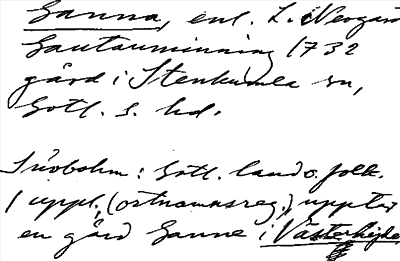 Ganna, enl. L. Neogård
Gautauminning 1732
gård i Stenkumla sn,
Gotl. s. hd.
Snöbohm: Gotl. land o. folk.
1 uppl. (ortnamnsreg.), upptar
en gård Ganne i Västerhejde